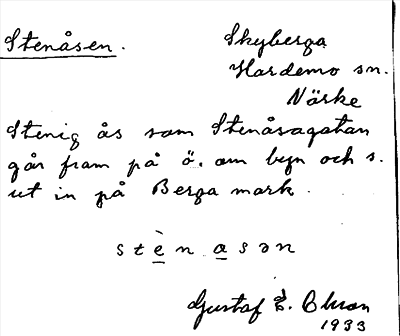 Stenåsen.
Skyberga
Hardemo sn.
Närke
Stenig ås som Stenåsagatan
går fram på ö. om byn och s.
ut in på Berga mark.
stènasən
Gustaf E. Olsson
1933